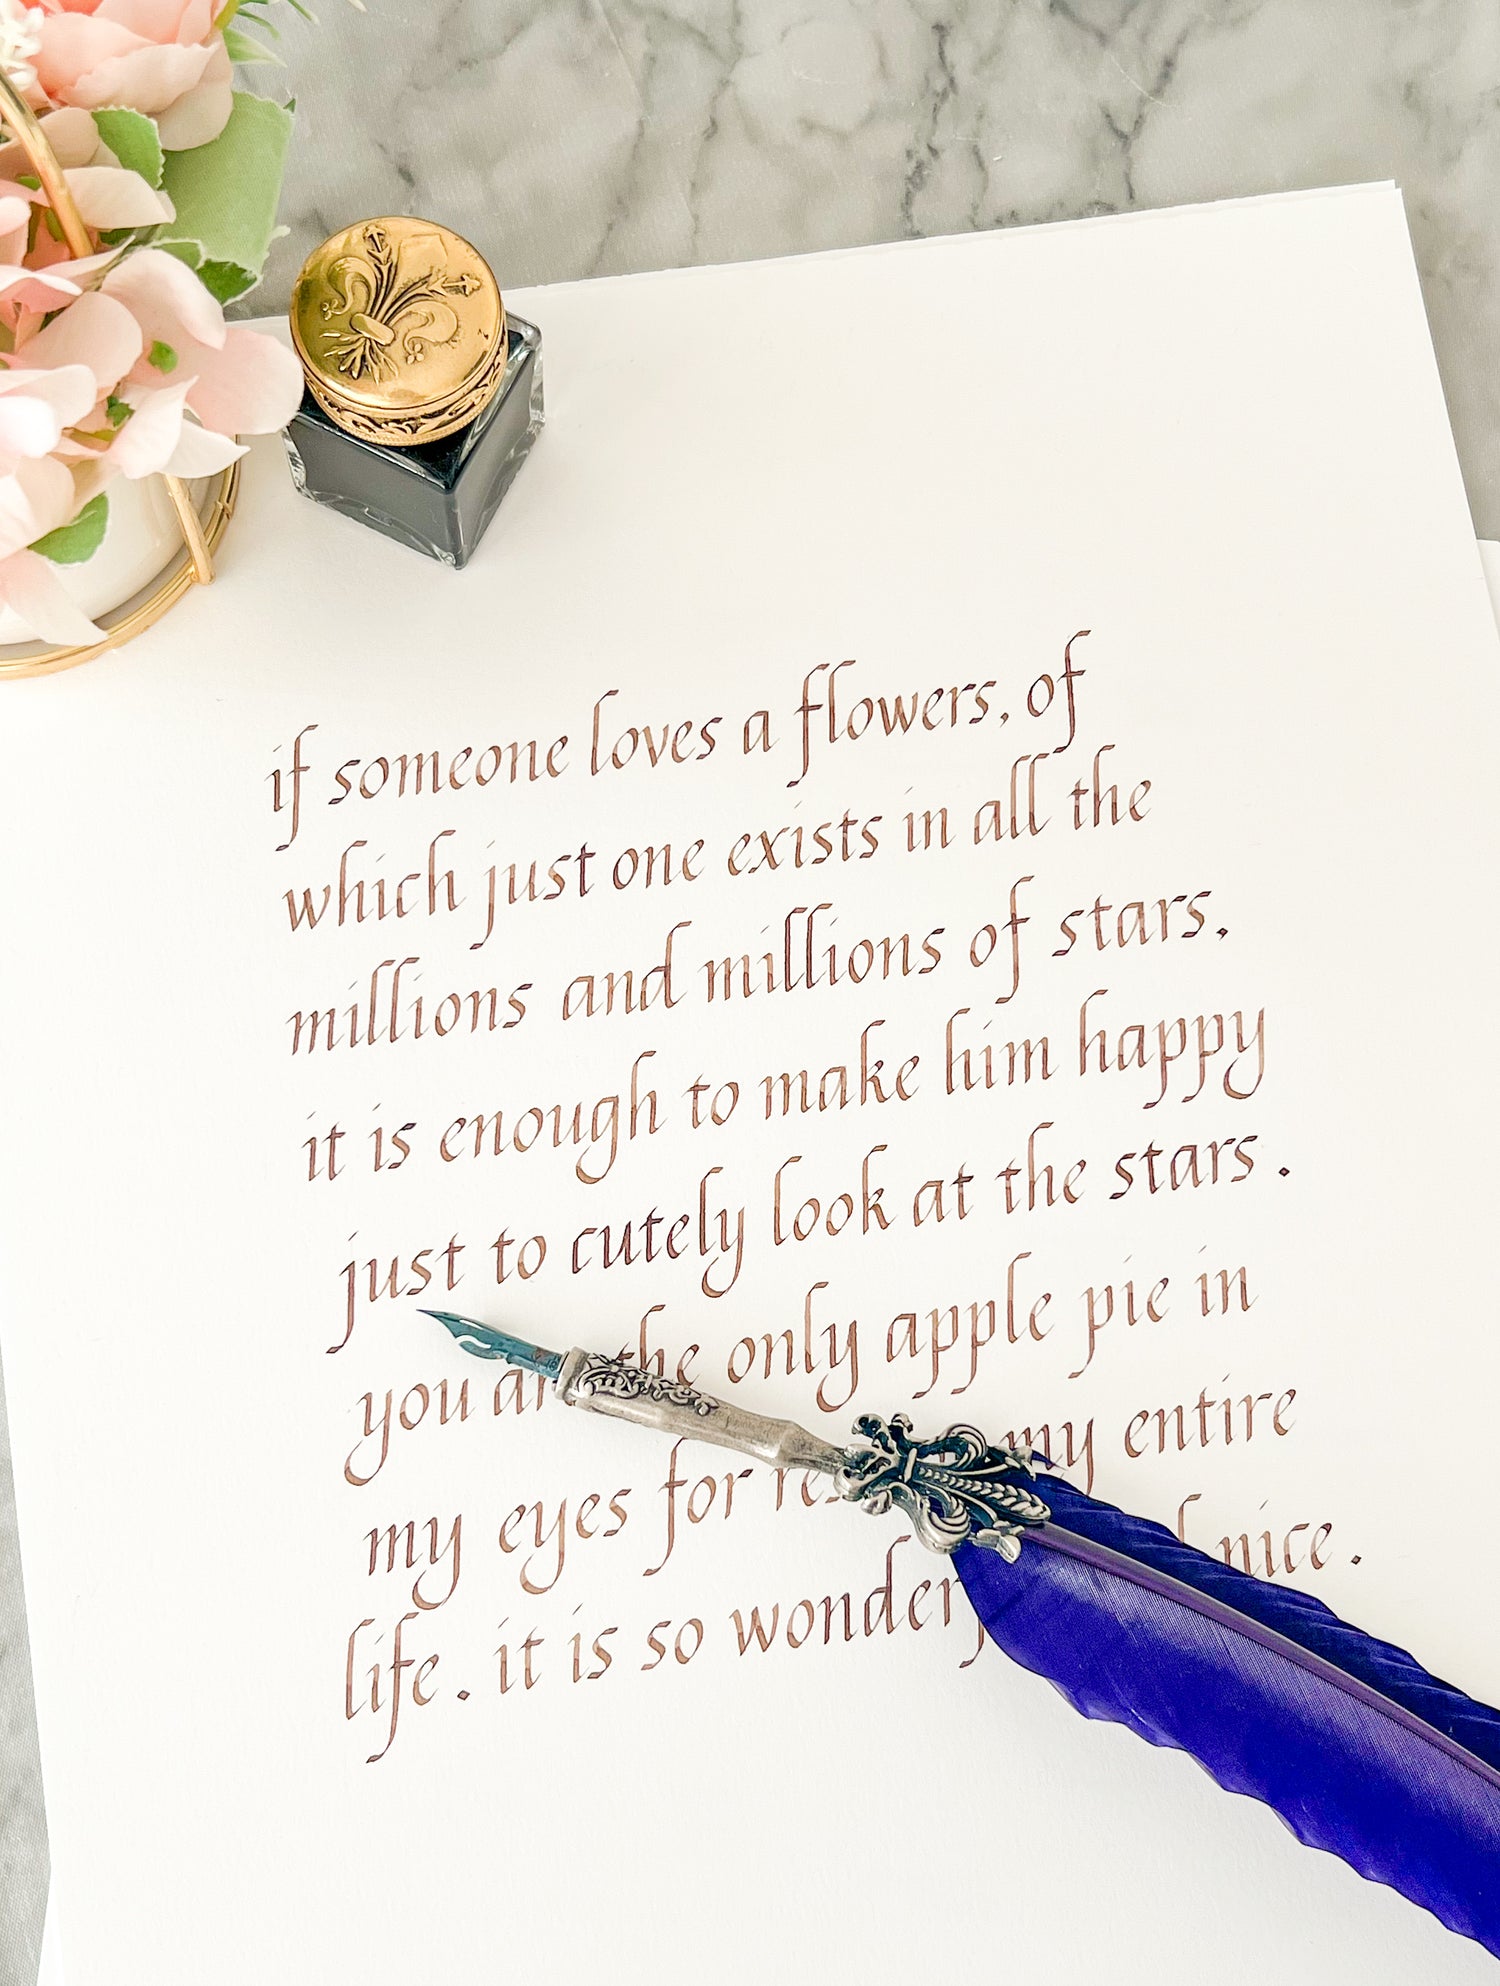 if someone loves a flowers, of
which just one exists in all the
millions and millions of stars,
it is enough to make him happy
just to cutely look at the stars.
you the only apple pie in
my eyes for my entire
life. it is so nice.